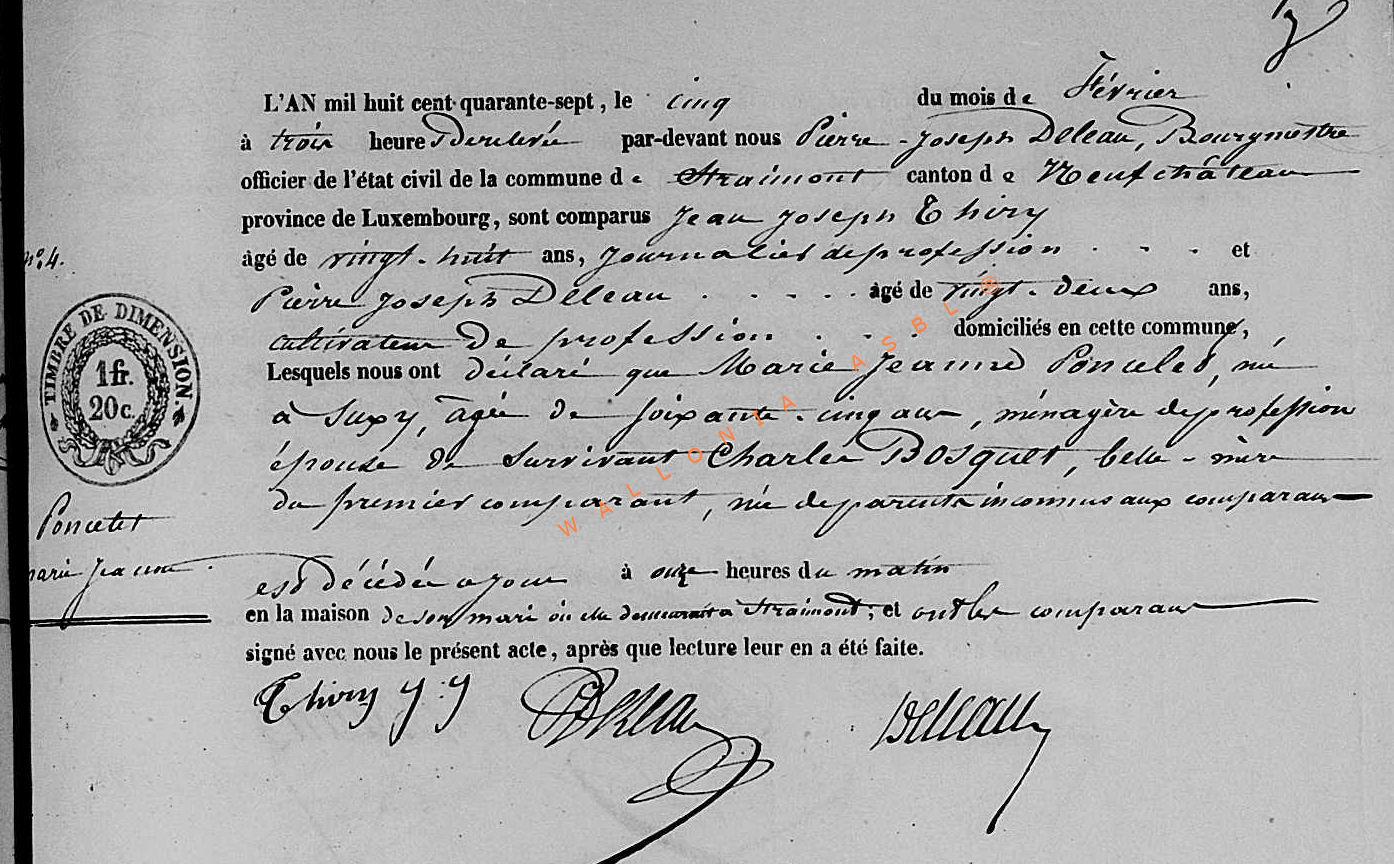 L'AN mil huit cent quarante-sept, le cinq du mois de Février
à trois heures de relevée par-devant nous Pierre-Joseph Deleau, Bourgmestre
officier de l'état civil de la commune de Straimont canton de Neufchâteau
province de Luxembourg, sont comparus Jean Joseph Thiry
âgé de vingt-huit ans, journalier de profession . - - . et
Pierre Joseph Deleau . . - - . . âgé de vingt-deux ans,
cultivateur de profession . . - . domiciliés en cette commune,
Lesquels nous ont déclaré que Marie Jeanne Poncelet, née
à Suxy, âgée de soixante-cinq ans, ménagère de profession
épouse de survivant Charles Bosquet, belle-mère
du premier comparant, née de parents inconnus aux comparans
est décédée ce jour à onze heures du matin
en la maison de son mari où elle demeurait à Straimont; et ont les comparans
signé avec nous le présent acte, après que lecture leur en a été faite.
Thiry J:J Deleau Deleau
n°.4.
TIMBRE DE DIMENSION.
1 fr.
20 c.
Poncelet
marie Jeanne.
WALLONIA ASBL ©